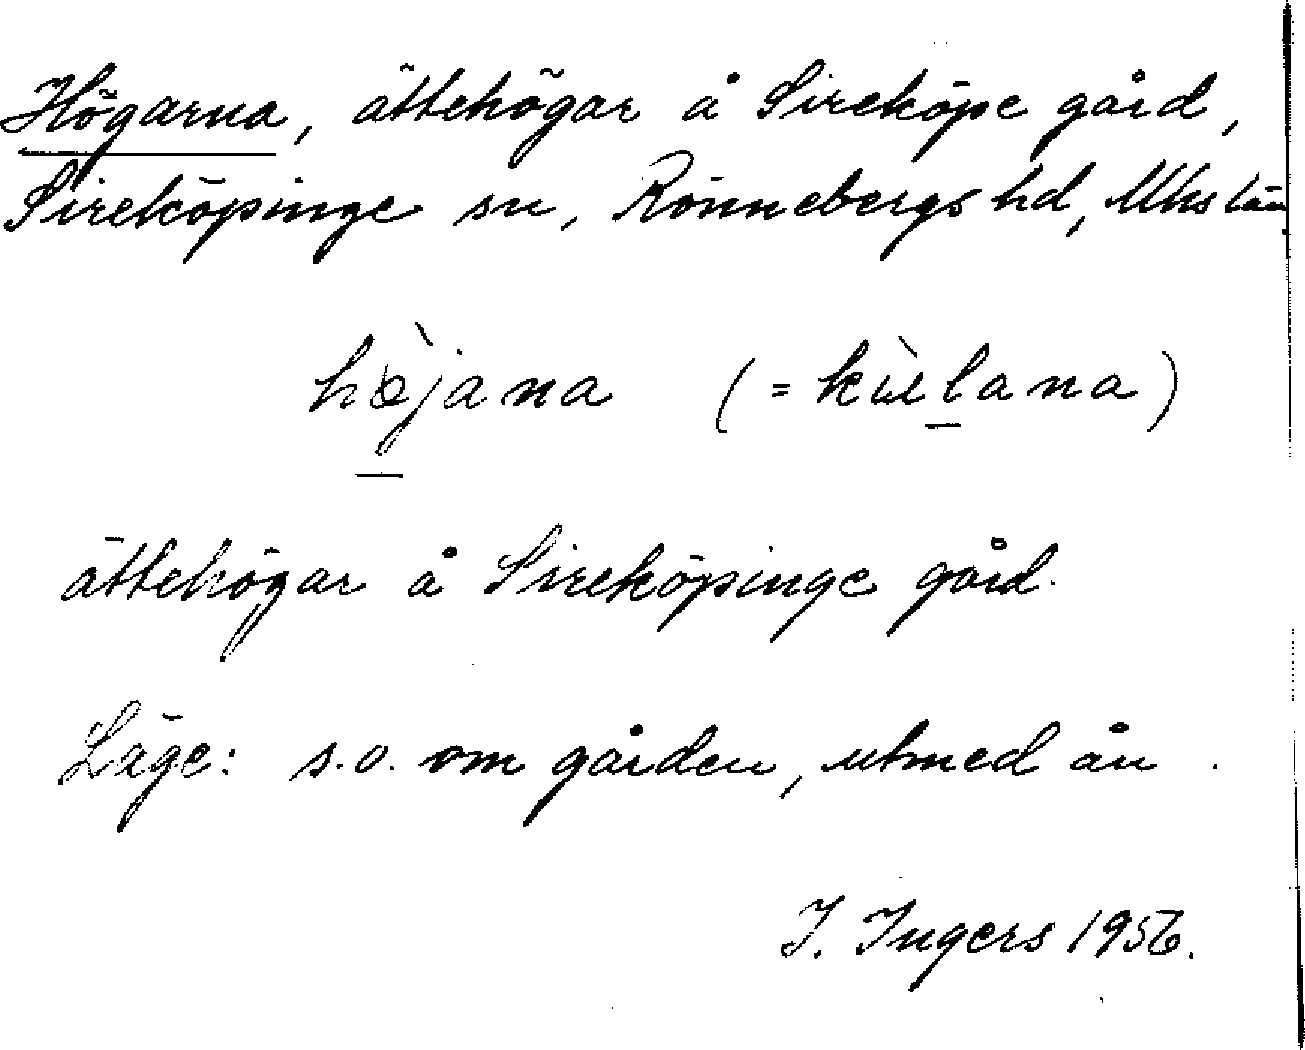 Högarna, ättehögar å Sireköpe gård,
Sireköpinge sn, Rönnebergs hd, Mhs län
hø̀jana (= kùlana)
ättehögar å Sireköpinge gård.
Läge: s.o. om gården, utmed ån.
I. Ingers 1956.